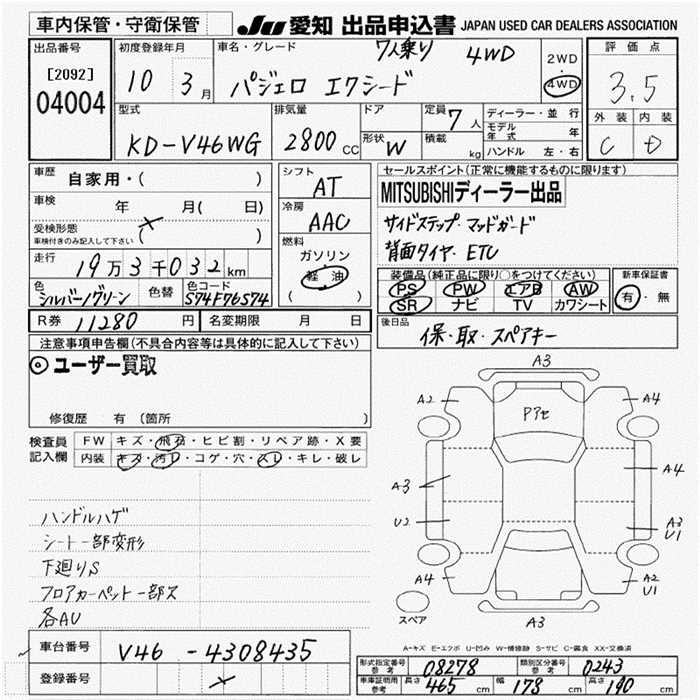 車内保管・守衛保管
JU 愛知 出品申込書 JAPAN USED CAR DEALERS ASSOCIATION
出品番号
[2092]
04004
初度登録年月
10 3月
車名・グレード
7人乗り 4WD
パジェロ エクシード
2WD
・
4WD
評価点
3.5
外装 内装
C D
型式
KD-V46WG
排気量
2800 CC
ドア
形状 W
定員 7人
積載 kg
ディーラー・並行
モデル年式 年
ハンドル 左・右
車歴 自家用・( )
車検 年 月( 日)
受検形態
車検付きのみ記入して下さい ( )
走行 19万3千032km
色 シルバー/グリーン 色替 色コード S74F76574
シフト
AT
冷房
AAC
燃料
ガソリン
軽油
( )
セールスポイント(正常に機能するものに限ります)
MITSUBISHIディーラー出品
サイドステップ・マッドガード
背面タイヤ・ETC
装備品(純正品に限り○をつけてください)
PS PW エアB AW
SR ナビ TV カワシート
新車保証書
有・無
R券 11280 円 名変期限 月 日
後日品
保・取・スペアキー
注意事項申告欄(不具合内容等は具体的に記入して下さい)
◎ユーザー買取
修復歴 有 (箇所
検査員記入欄
FW キズ・飛石・ヒビ割・リペア跡・X要
内装 キズ・汚レ・コゲ・穴・スレ・キレ・破レ
ハンドルハゲ
シート一部変形
下廻りS
フロアカーペット一部ヌ
各AU
A3
A2
A4
Pアセ
A3
A4
U2
A3
U1
A4
A2
U1
スペア
A3
A-キズ E-エクボ U-凹み W-補修跡 S-サビ C-腐食 XX-交換済
車台番号 V46 -4308435
登録番号
形式指定番号 参考 08278 類別区分番号 参考 0243
車庫証明用 参考 長さ 465 cm 幅 178 cm 高さ 190 cm